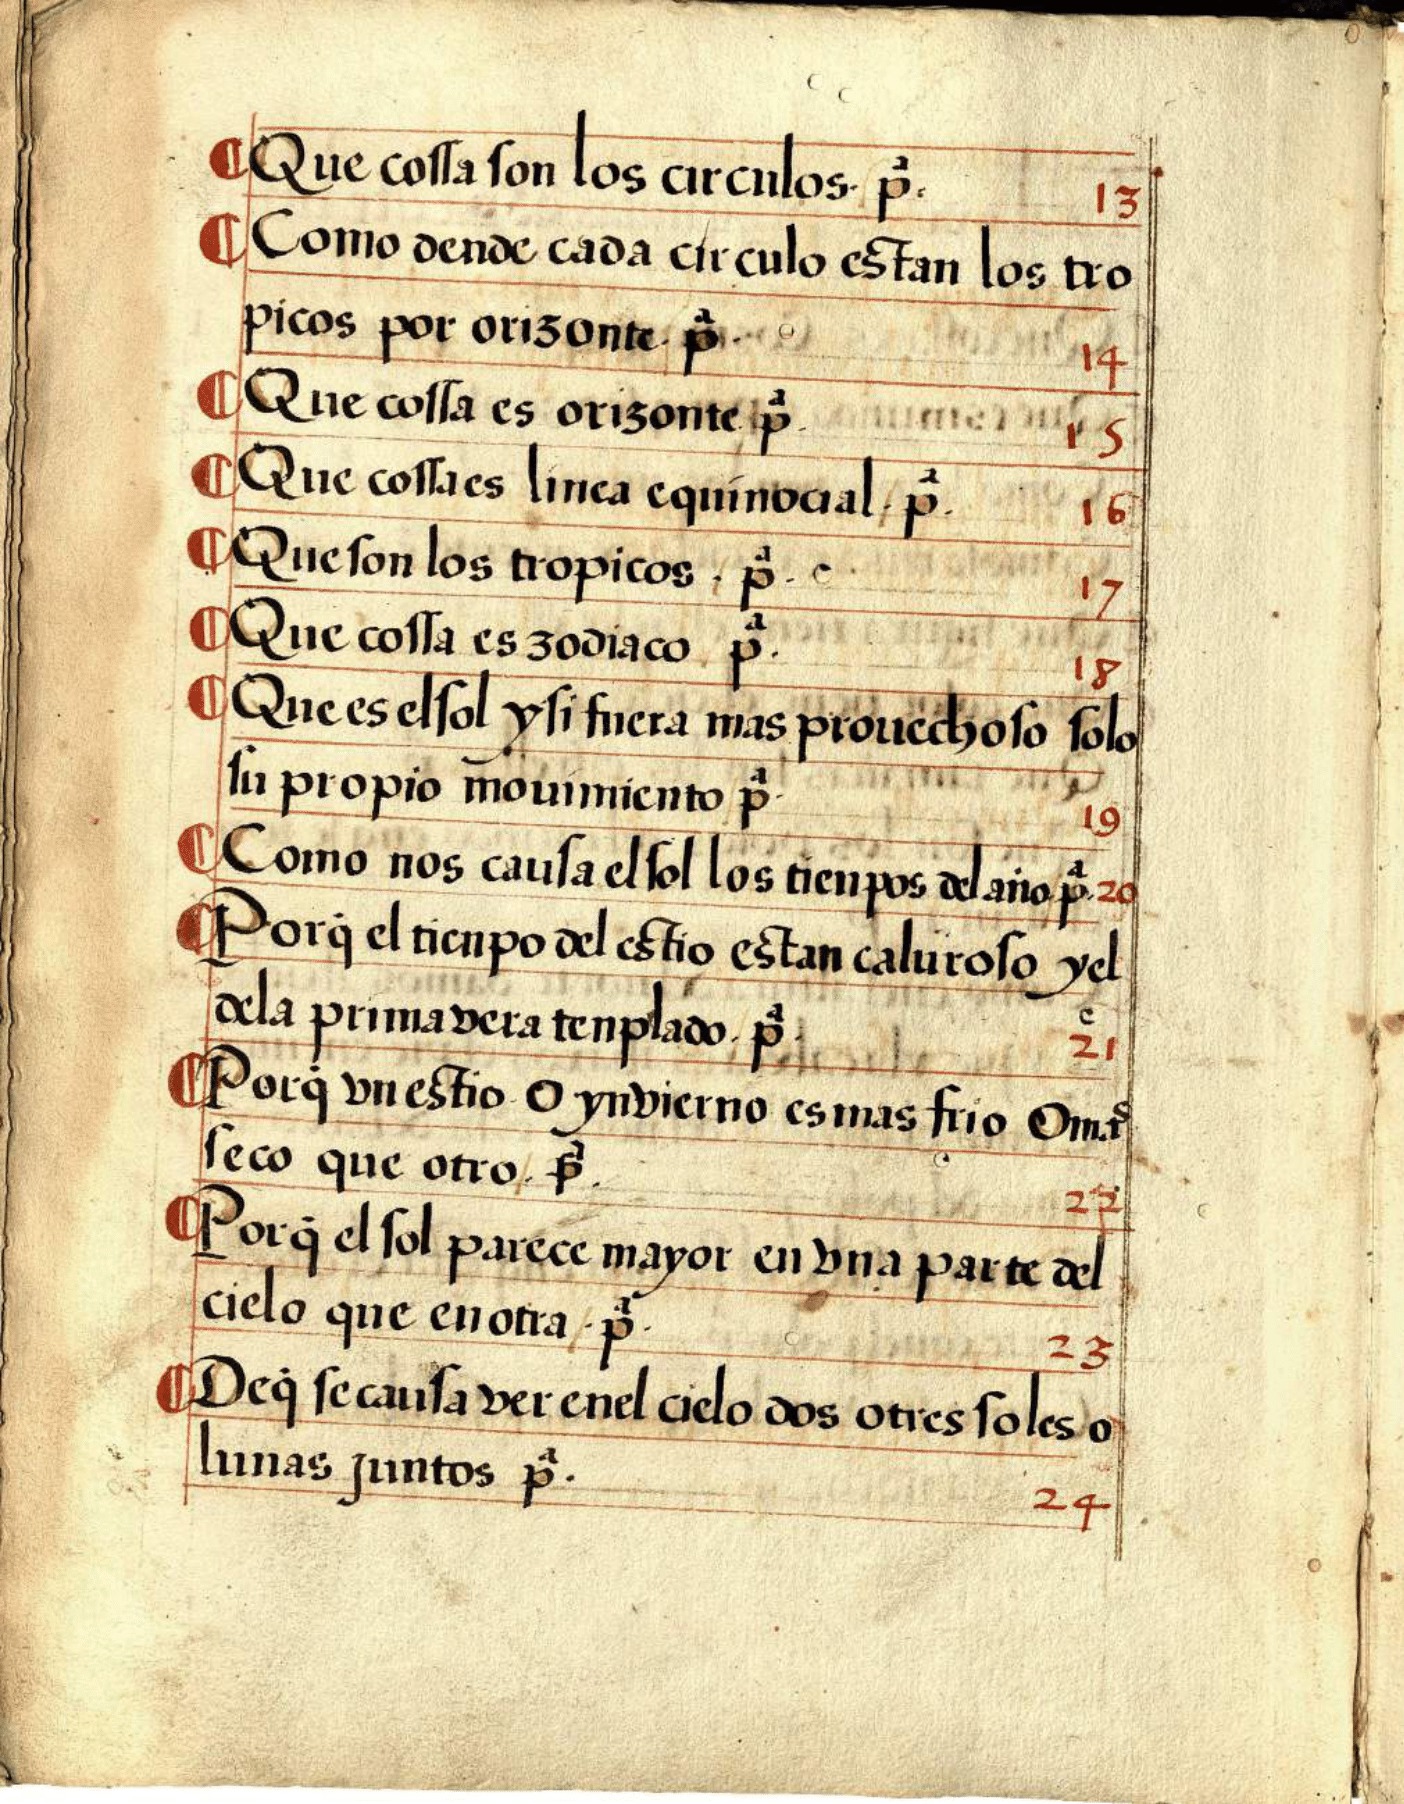 ¶ Que cossa son los circulos. pª. 13
¶ Como dende cada circulo estan los tro
picos por orizonte. pª. 14
¶ Que cossa es orizonte pª. 15
¶ Que cossa es linea equinocial. pª. 16
¶ Que son los tropicos. pª. 17
¶ Que cossa es zodiaco pª. 18
¶ Que es el sol y si fuera mas prouechoso solo
su propio mouimiento pª. 19
¶ Como nos causa el sol los tienpos del año. pª. 20
¶ Porq̃ el tienpo del estio es tan caluroso y el
dela primavera tenplado. pª. 21
¶ Porq̃ vn estio o ynvierno es mas frio o mas
seco que otro. pª. 22
¶ Porq̃ el sol parece mayor en vna parte del
cielo que en otra. pª. 23
¶ Deq̃ se causa ver enel cielo dos o tres soles o
lunas juntos pª. 24